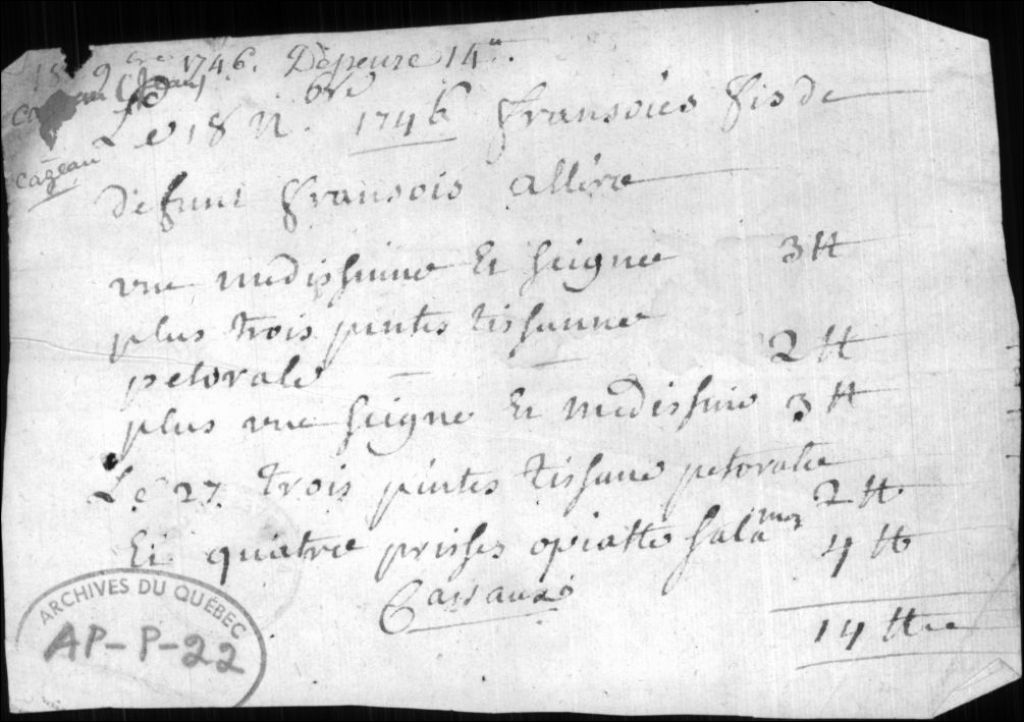 18 9bre 1746. Dépense 14tt.
Cageau
Le 18 N.bre 1746 fransoies fis de
defunt fransois allére
une medissinne Et seignee 3 tt
plus trois pintes tissanne
petorale - - 2 tt
plus une seigne Et medissine 3 tt
Le 27 trois pintes tissane petoralle
2 tt
Et quatre prisses opiatte sala mon 4 tt
14 ttre
ARCHIVES DU QUÉBEC
AP-P-22